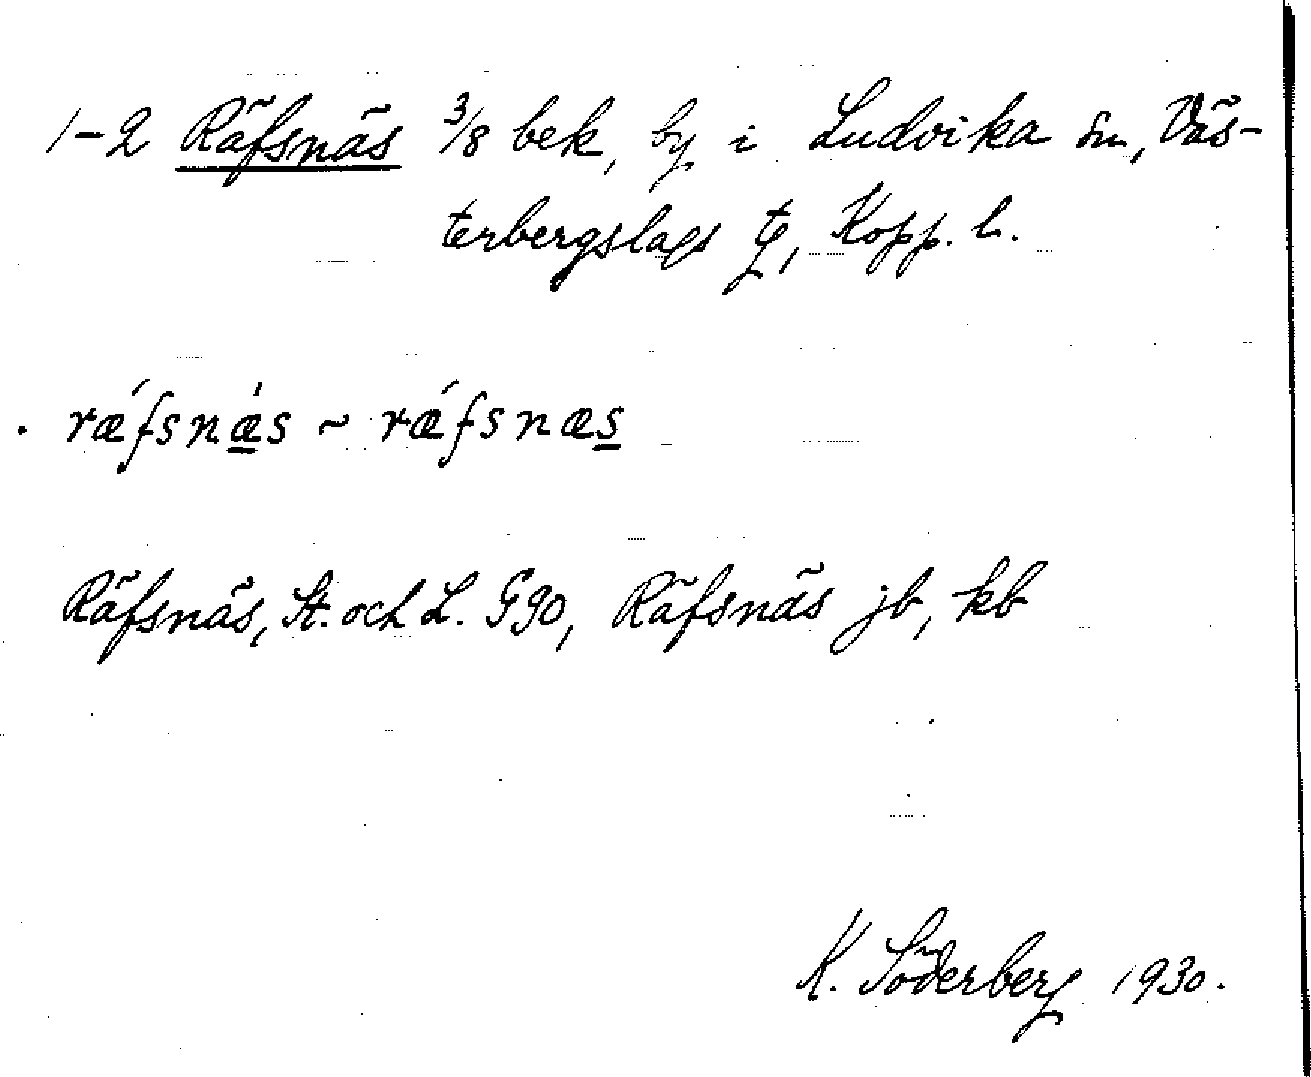 1-2 Räfsnäs 3/8 bek, by i Ludvika sn, Väs-
terbergslags tg, Kopp. l.
rǽfsnæ̲̀s ~ rǽfsnæs̲
Räfsnäs, St. och L. G90, Räfsnäs jb, kb
K. Söderberg 1930.